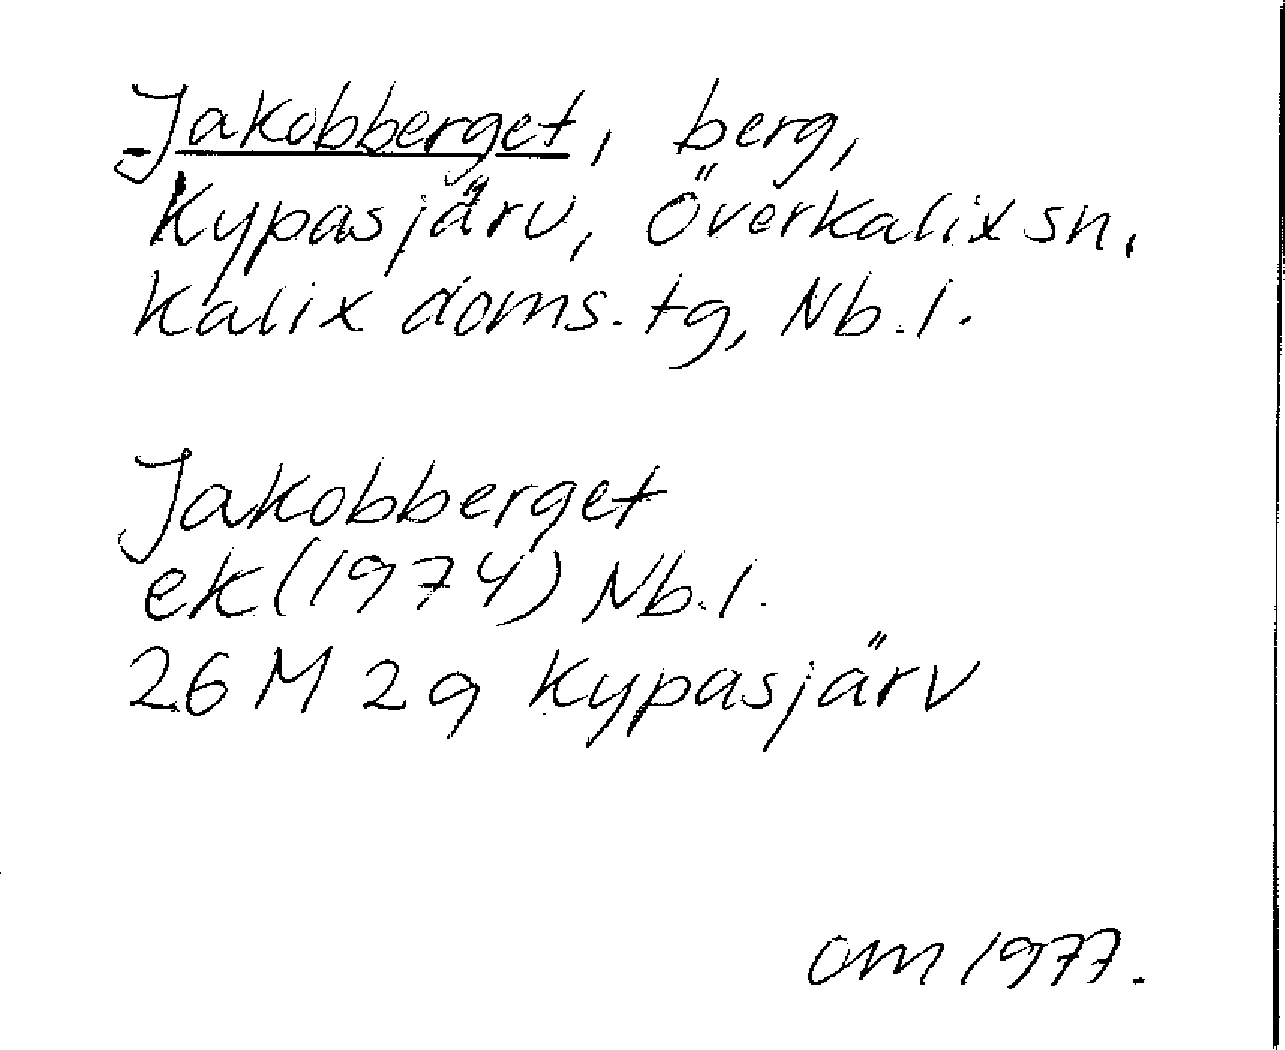 Jakobberget, berg,
Kypasjärv, Överkalix sn,
Kalix doms. tg, Nb. l.
Jakobberget
ek (1974) Nb. l.
26 M 2 g Kypasjärv
OM 1977.